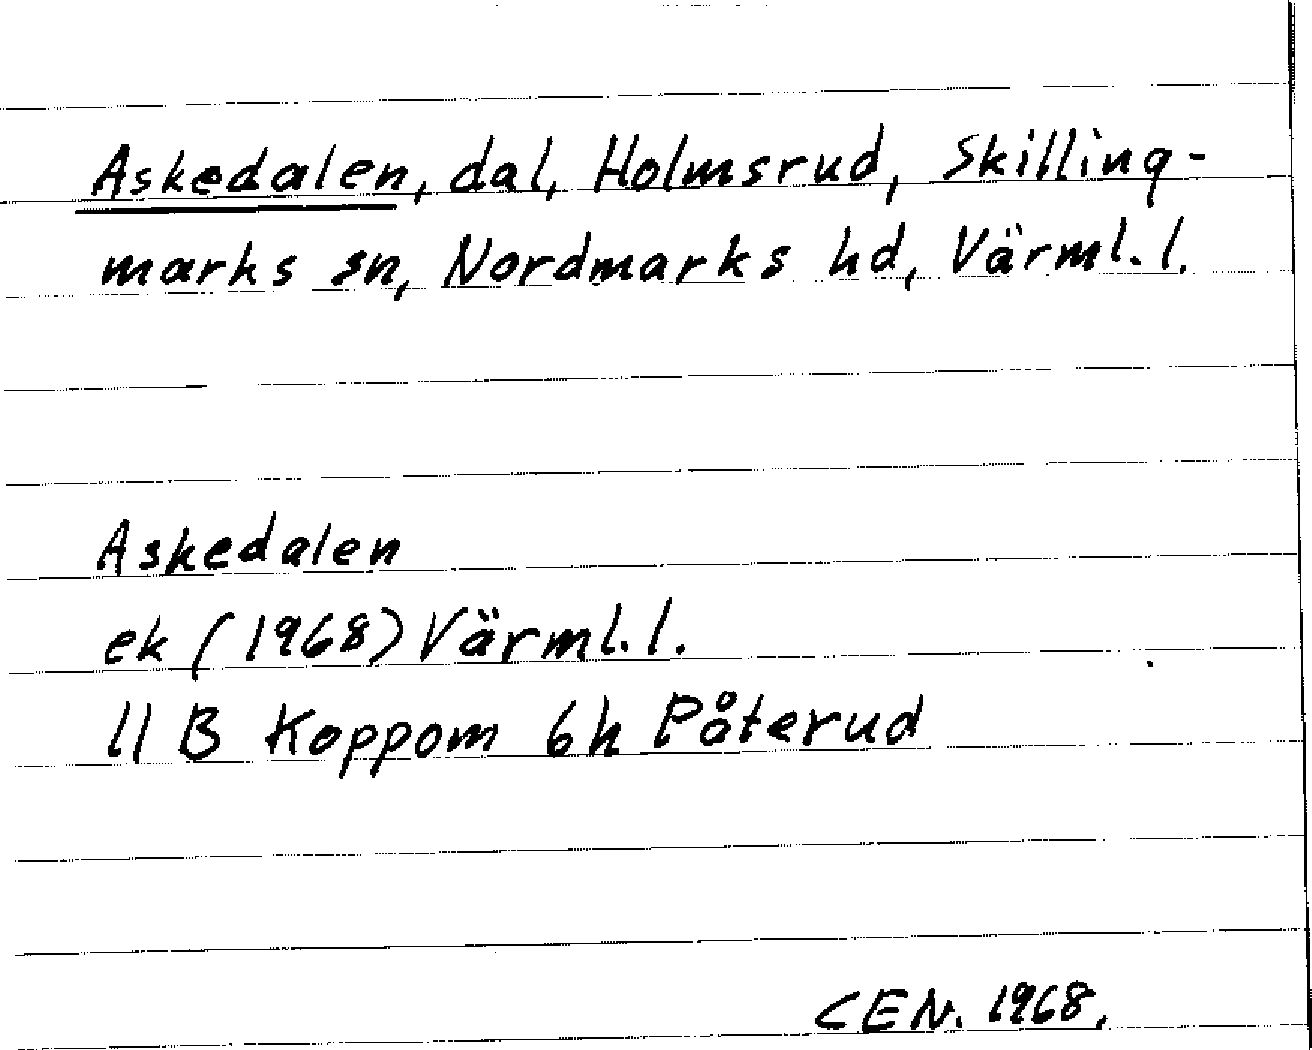 Askedalen, dal, Holmsrud, Skilling-
marks sn, Nordmarks hd, Värml. l.
Askedalen
ek (1968) Värml. l.
11 B Koppom 6h Påterud
CEN. 1968.